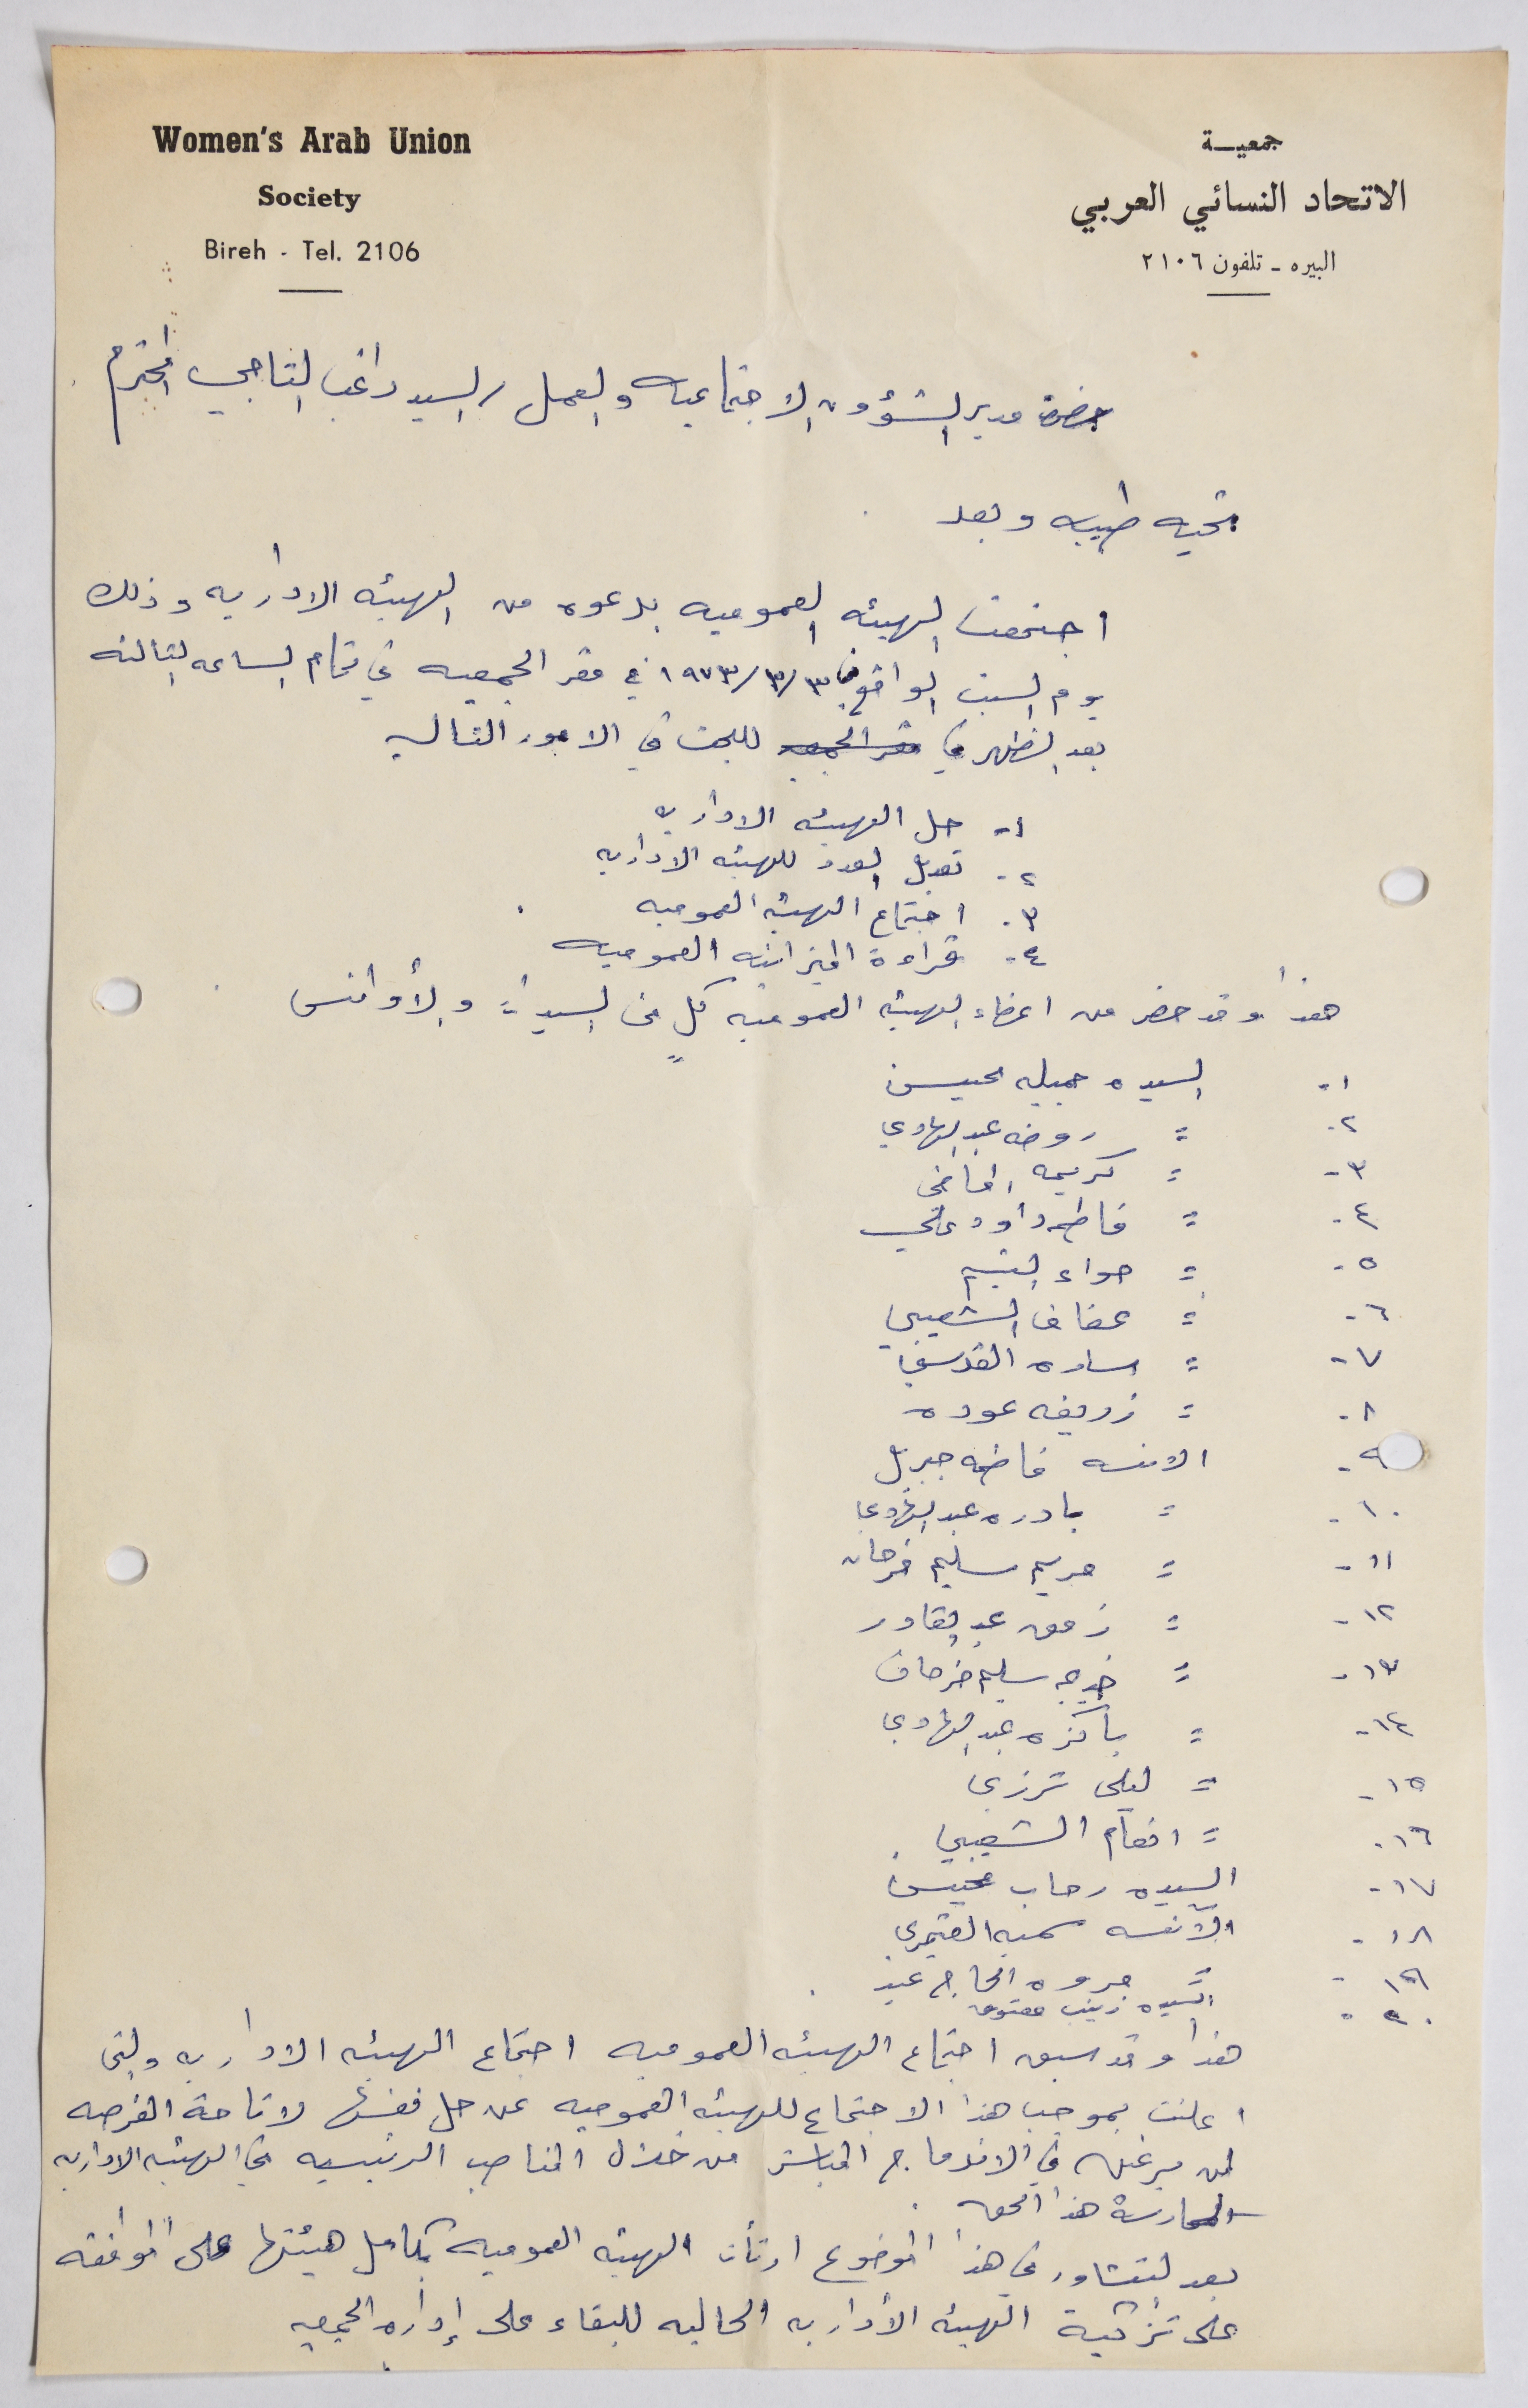 Women's Arab Union
Society
Bireh - Tel. 2106
جمعيـة
الاتحاد النسائي العربي
البيره - تلفون ٢١٠٦
حضرة مدير الشؤون الاجتماعيه والعمل / السيد راغب التاجي المحترم
تحيه طيبه وبعد
اجتمعت الهيئه العموميه بدعوه من الهيئه الاداريه وذلك
يوم السبت الواقع في ١٩٧٣/٣/٣ في مقر الجمعيه في تمام الساعه الثالثه
بعد الظهر في مقر الجمعيه للبحث في الامور التاليه
١- حل الهيئه الاداريه
٢- تعديل العدد للهيئه الاداريه
٣- اجتماع الهيئه العموميه
٤- قراءة الميزانيه العموميه
هذا وقد حضر من اعضاء الهيئه العموميه كلٍ من السيدات والأوانس
١- السيده جميله محيسن
٢- = روضه عبد الهادي
٣- = كريمه
٤- = فاطمه داود علي
٥- = حواء اليتيم
٦- = عفاف الشعيبي
٧- = ساره القدسي
٨- = زريفه عوده
٩- الانسه فاطمه جبريل
١٠- = بادره عبد الهادي
١١- = مريم سليم فرحان
١٢- = عبد القادر
١٣- = خديجه سليم فرحان
١٤- = باكزه عبد الهادي
١٥- = ليلى ترزي
١٦- = انعام الشعيبي
١٧- السيده رحاب محيسن
١٨- الآنسه سميه القيمري
١٩- = مروه الحاج عيد
٢٠- السيده زينب معتوق
هذا وقد سبق اجتماع الهيئه العموميه اجتماع الهيئه الاداريه والتي
اعلنت بموجب هذا الاجتماع للهيئه العموميه عن حل نفسها لاتاحة الفرصه
لمن يرغبن في الاندماج المباشر من خلال المناصب الرئيسيه في الهيئه الاداريه
لممارسة هذا الحق.
بعد التشاور في هذا الموضوع ارتأت الهيئه العموميه بكامل هيئتها على الموافقه
على تزكية الهيئه الأداريه الحاليه للبقاء على إداره الجمعيه